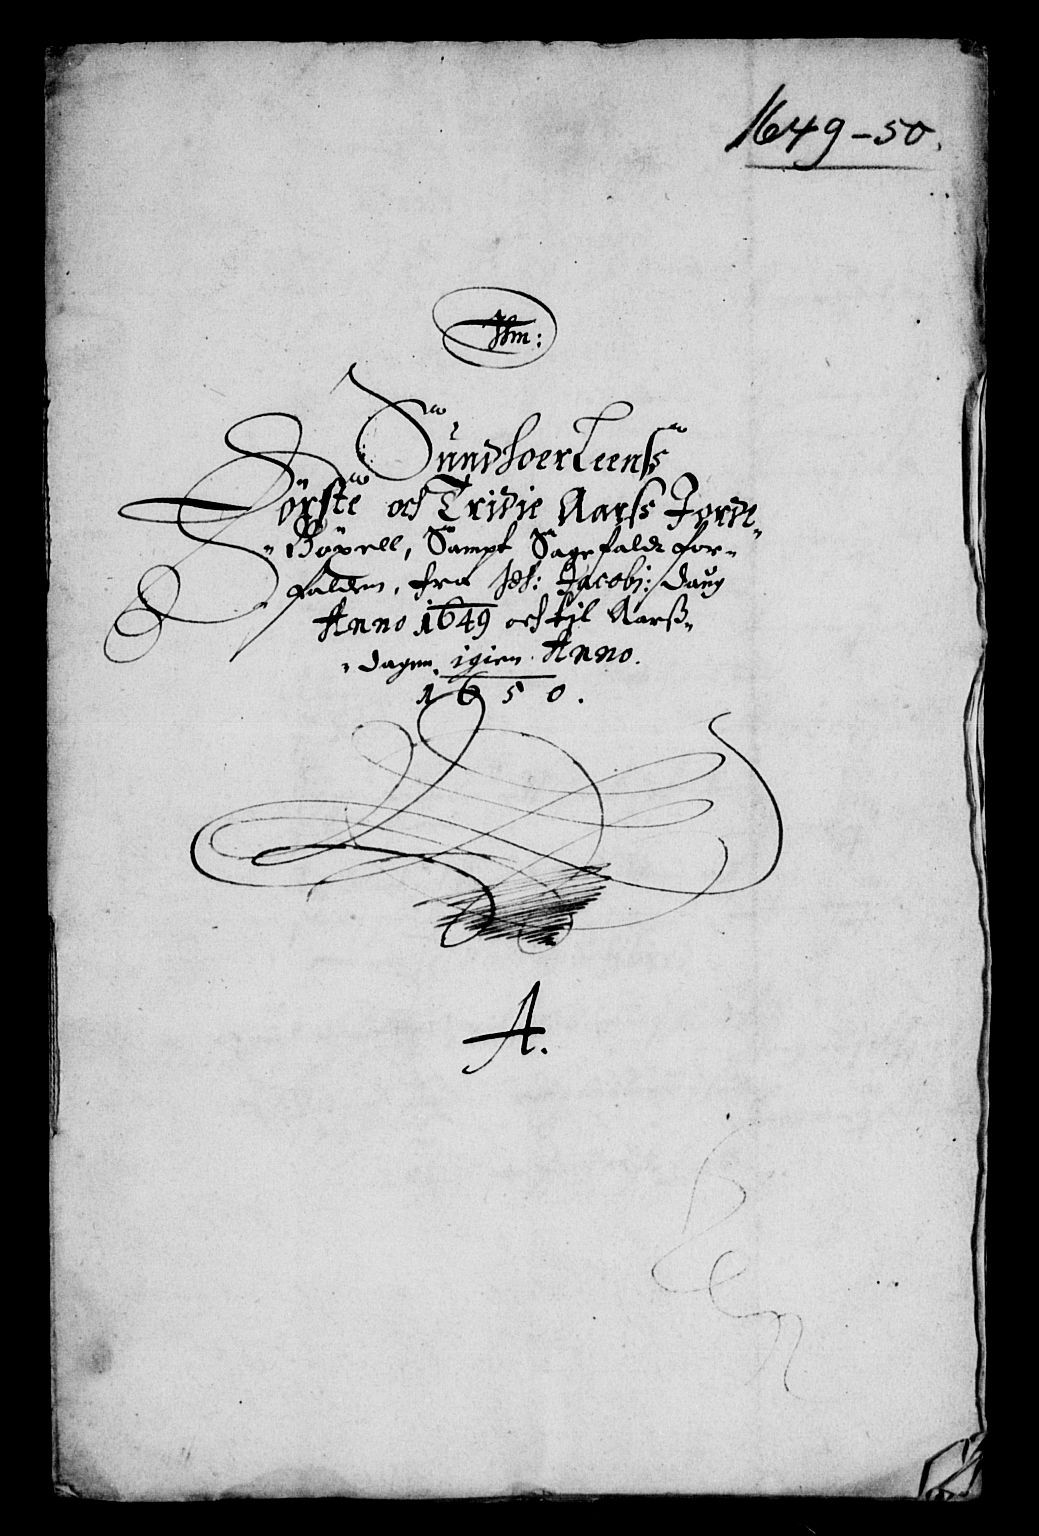 1649-50.
Jhm:
Sundhoerleens
Förste och Tridie Aarss Jorde-
Böxell, Sampt Sagefaldz for-
falden, fra Jacobj: daug
Anno 1649 och til Aarsz-
dagen igien Anno.
1650.
A.